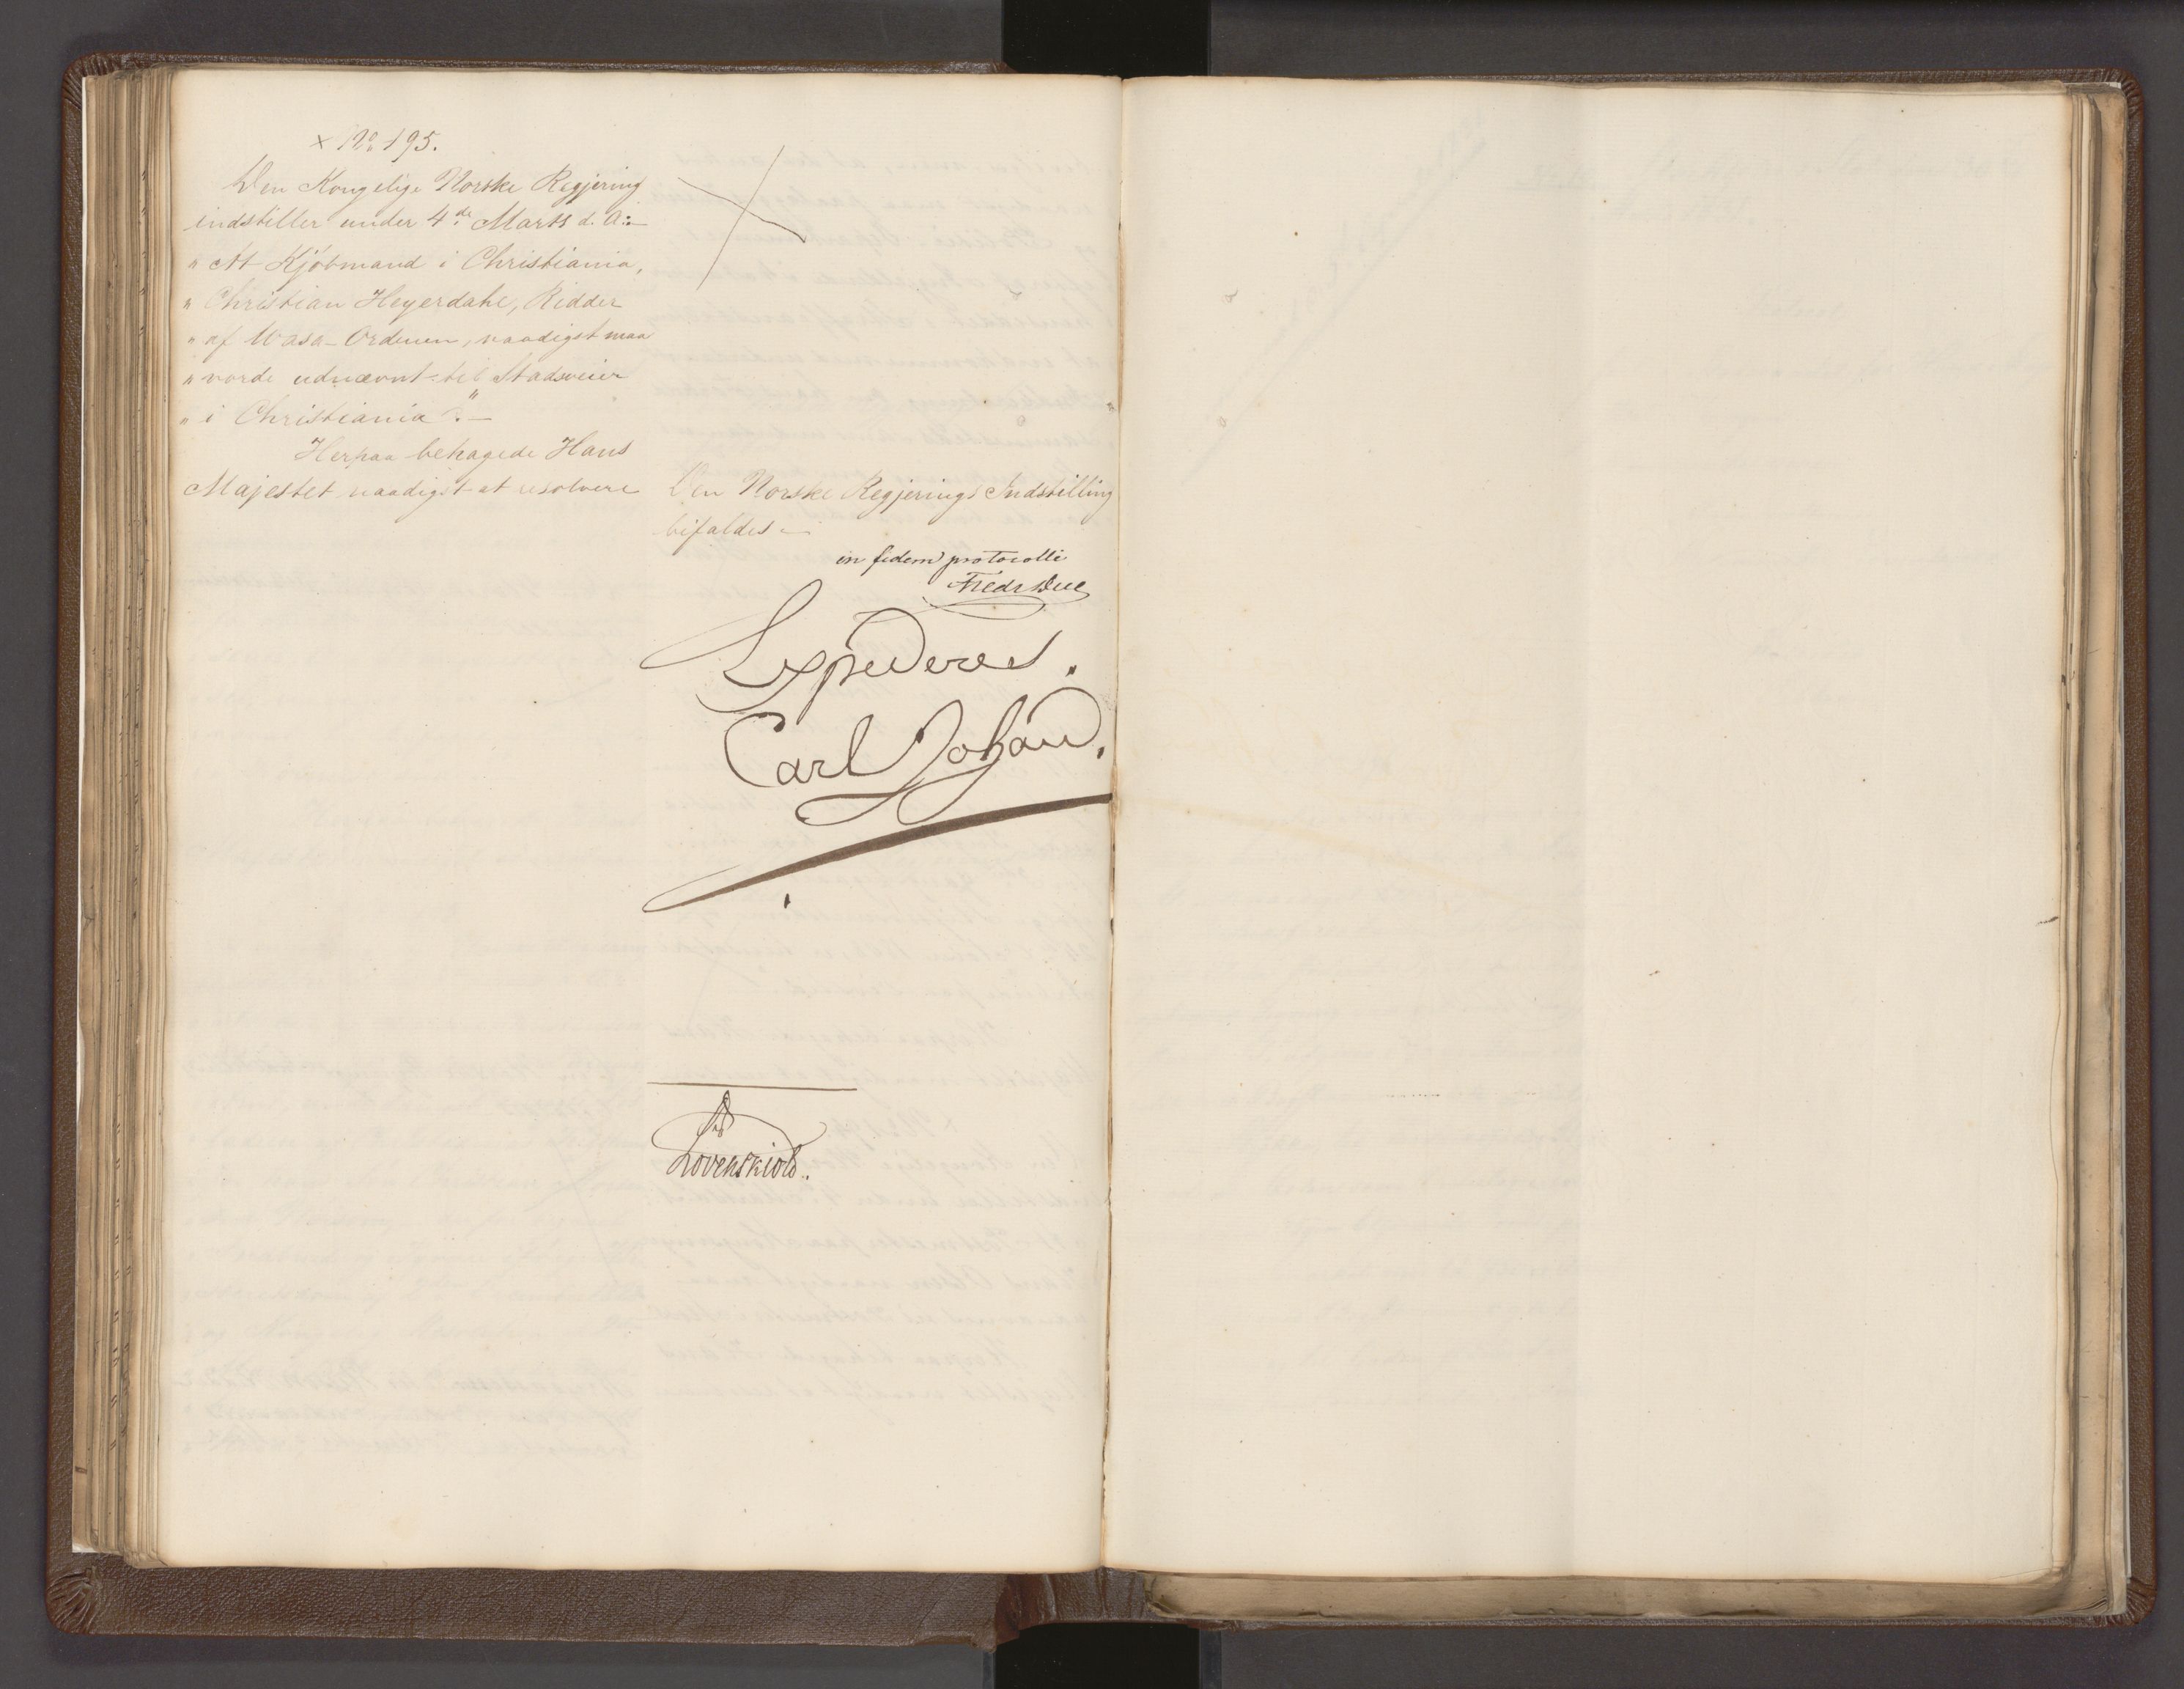 × No 195.
Den Kongelige Norske Regjering
indstiller under 4de Marts d. A:-
" At Kjöbmand i Christiania,
" Christian Heyerdahl, Ridder
" af Wasa-Ordenen, naadigst maa
" vorde udnævnt til Stadsveier
" i Christiania". -
Herpaa behagede Hans
Majestet naadigst at resolvere
Den Norske Regjerings Indstilling
bifaldes -
in fidem protocolli
Fredr Due
Expederes.
Carl Johan.
Løvenskiold.